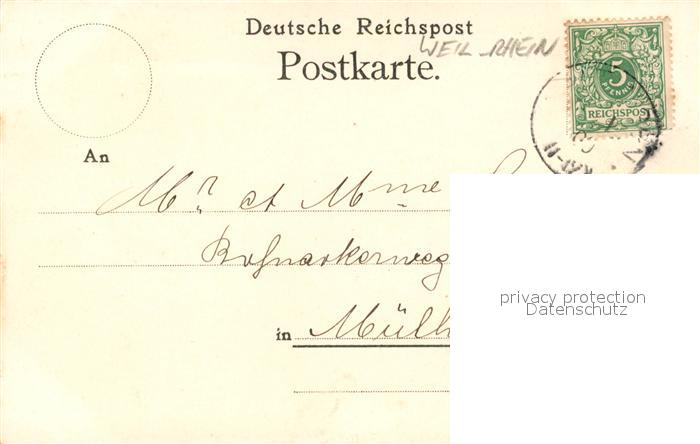 Deutsche Reichspost
WEIL-RHEIN
Postkarte.
5
PFENNIG
REICHSPOST
An
Mr et Mme
in Mülh
privacy protection
Datenschutz